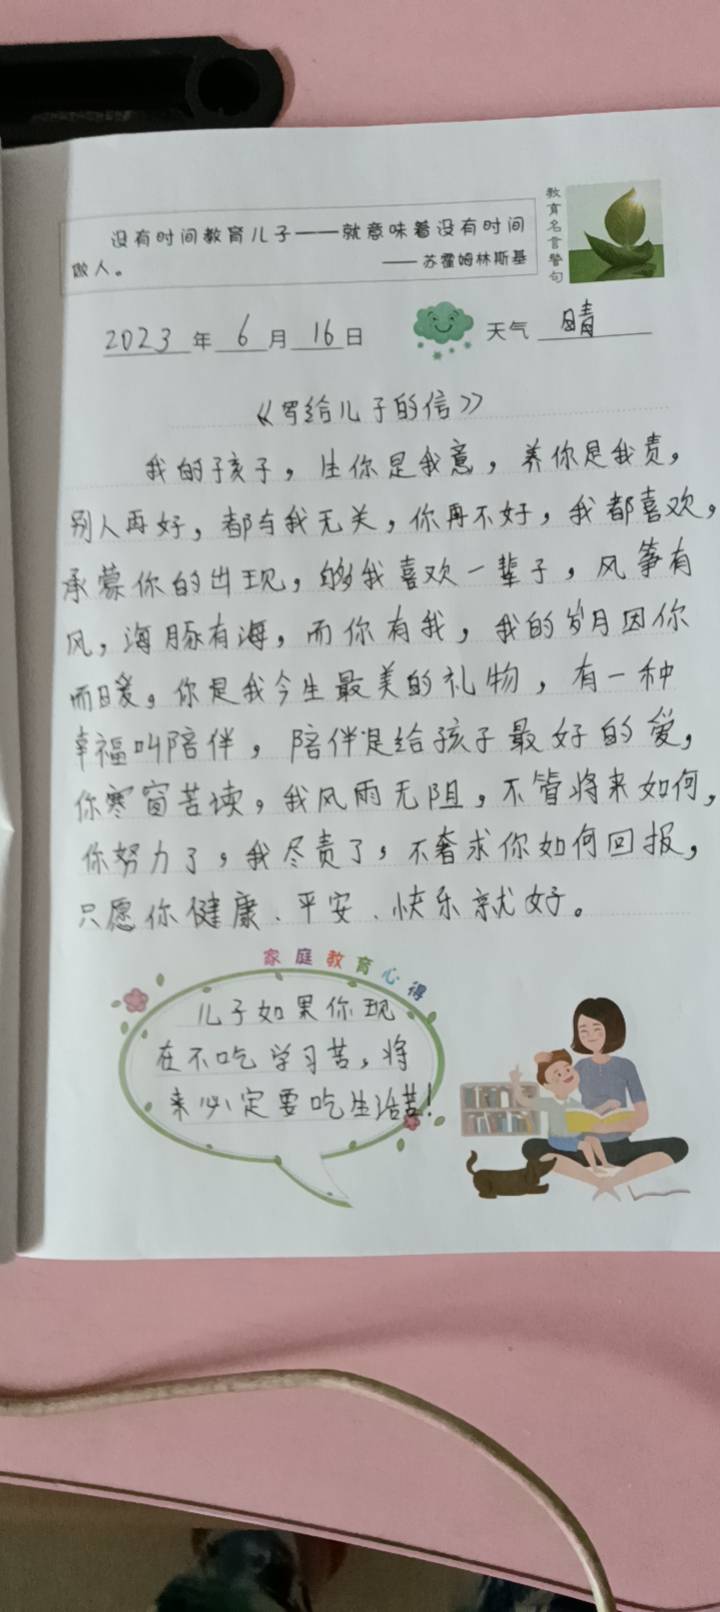 没有时间教育儿子——就意味着没有时间
做人。
——苏霍姆林斯基
教育名言警句
2023年6月16日
天气 晴
《写给儿子的信》
我的孩子，生你是我意，养你是我责，
别人再好，都与我无关，你再不好，我都喜欢，
承蒙你的出现，够我喜欢一辈子，风筝有
风，海豚有海，而你有我，我的岁月因你
而暖。你是我今生最美的礼物，有一种
幸福叫陪伴，陪伴是给孩子最好的爱，
你寒窗苦读，我风雨无阻，不管将来如何，
你努力了，我尽责了，不奢求你如何回报，
只愿你健康、平安、快乐就好。
家庭教育心得
儿子如果你现
在不吃学习苦，将
来必定要吃生活苦！